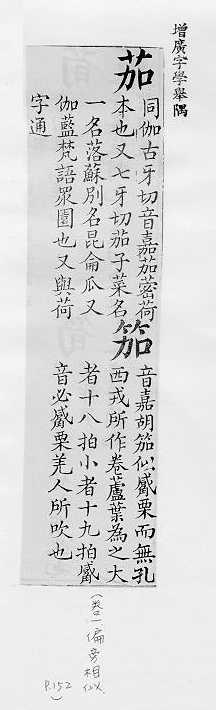 增廣字學舉隅
茄
同伽古牙切音嘉茄密荷
本也又七牙切茄子菜名
一名落蘇別名昆侖瓜又
伽藍梵語眾園也又與荷
字通
笳
音嘉胡笳似觱栗而無孔
西戎所作卷蘆葉為之大
者十八拍小者十九拍觱
音必觱栗羌人所吹也
(卷一偏旁相似
P.152)